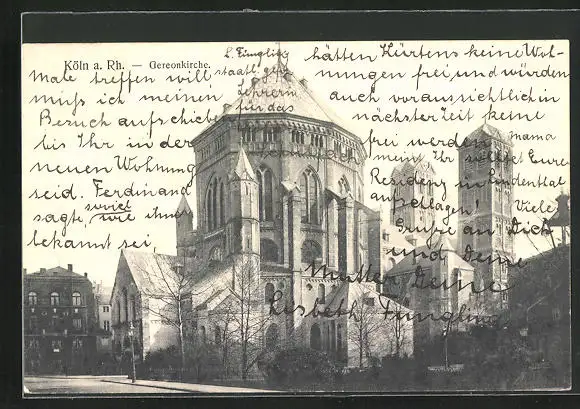 Köln a. Rh. — Gereonkirche.
L. Fünglin
staatl. gepr.
Lehrerin
für das
Male treffen will
muss ich meinen
Besuch aufschieben
bis Ihr in der
neuen Wohnung
seid. Ferdinand
sagte, soviel wie ihm
bekannt sei
hätten Kürtens keine Woh-
nungen frei, und würden
auch voraussichtlich in
nächster Zeit keine
frei werden. mama
meint Ihr solltet Eure
Residenz in Lindenthal
aufschlagen! Viele
Grüße an Dich
und Deine
Mutter Deine
Lisbeth Fünglin